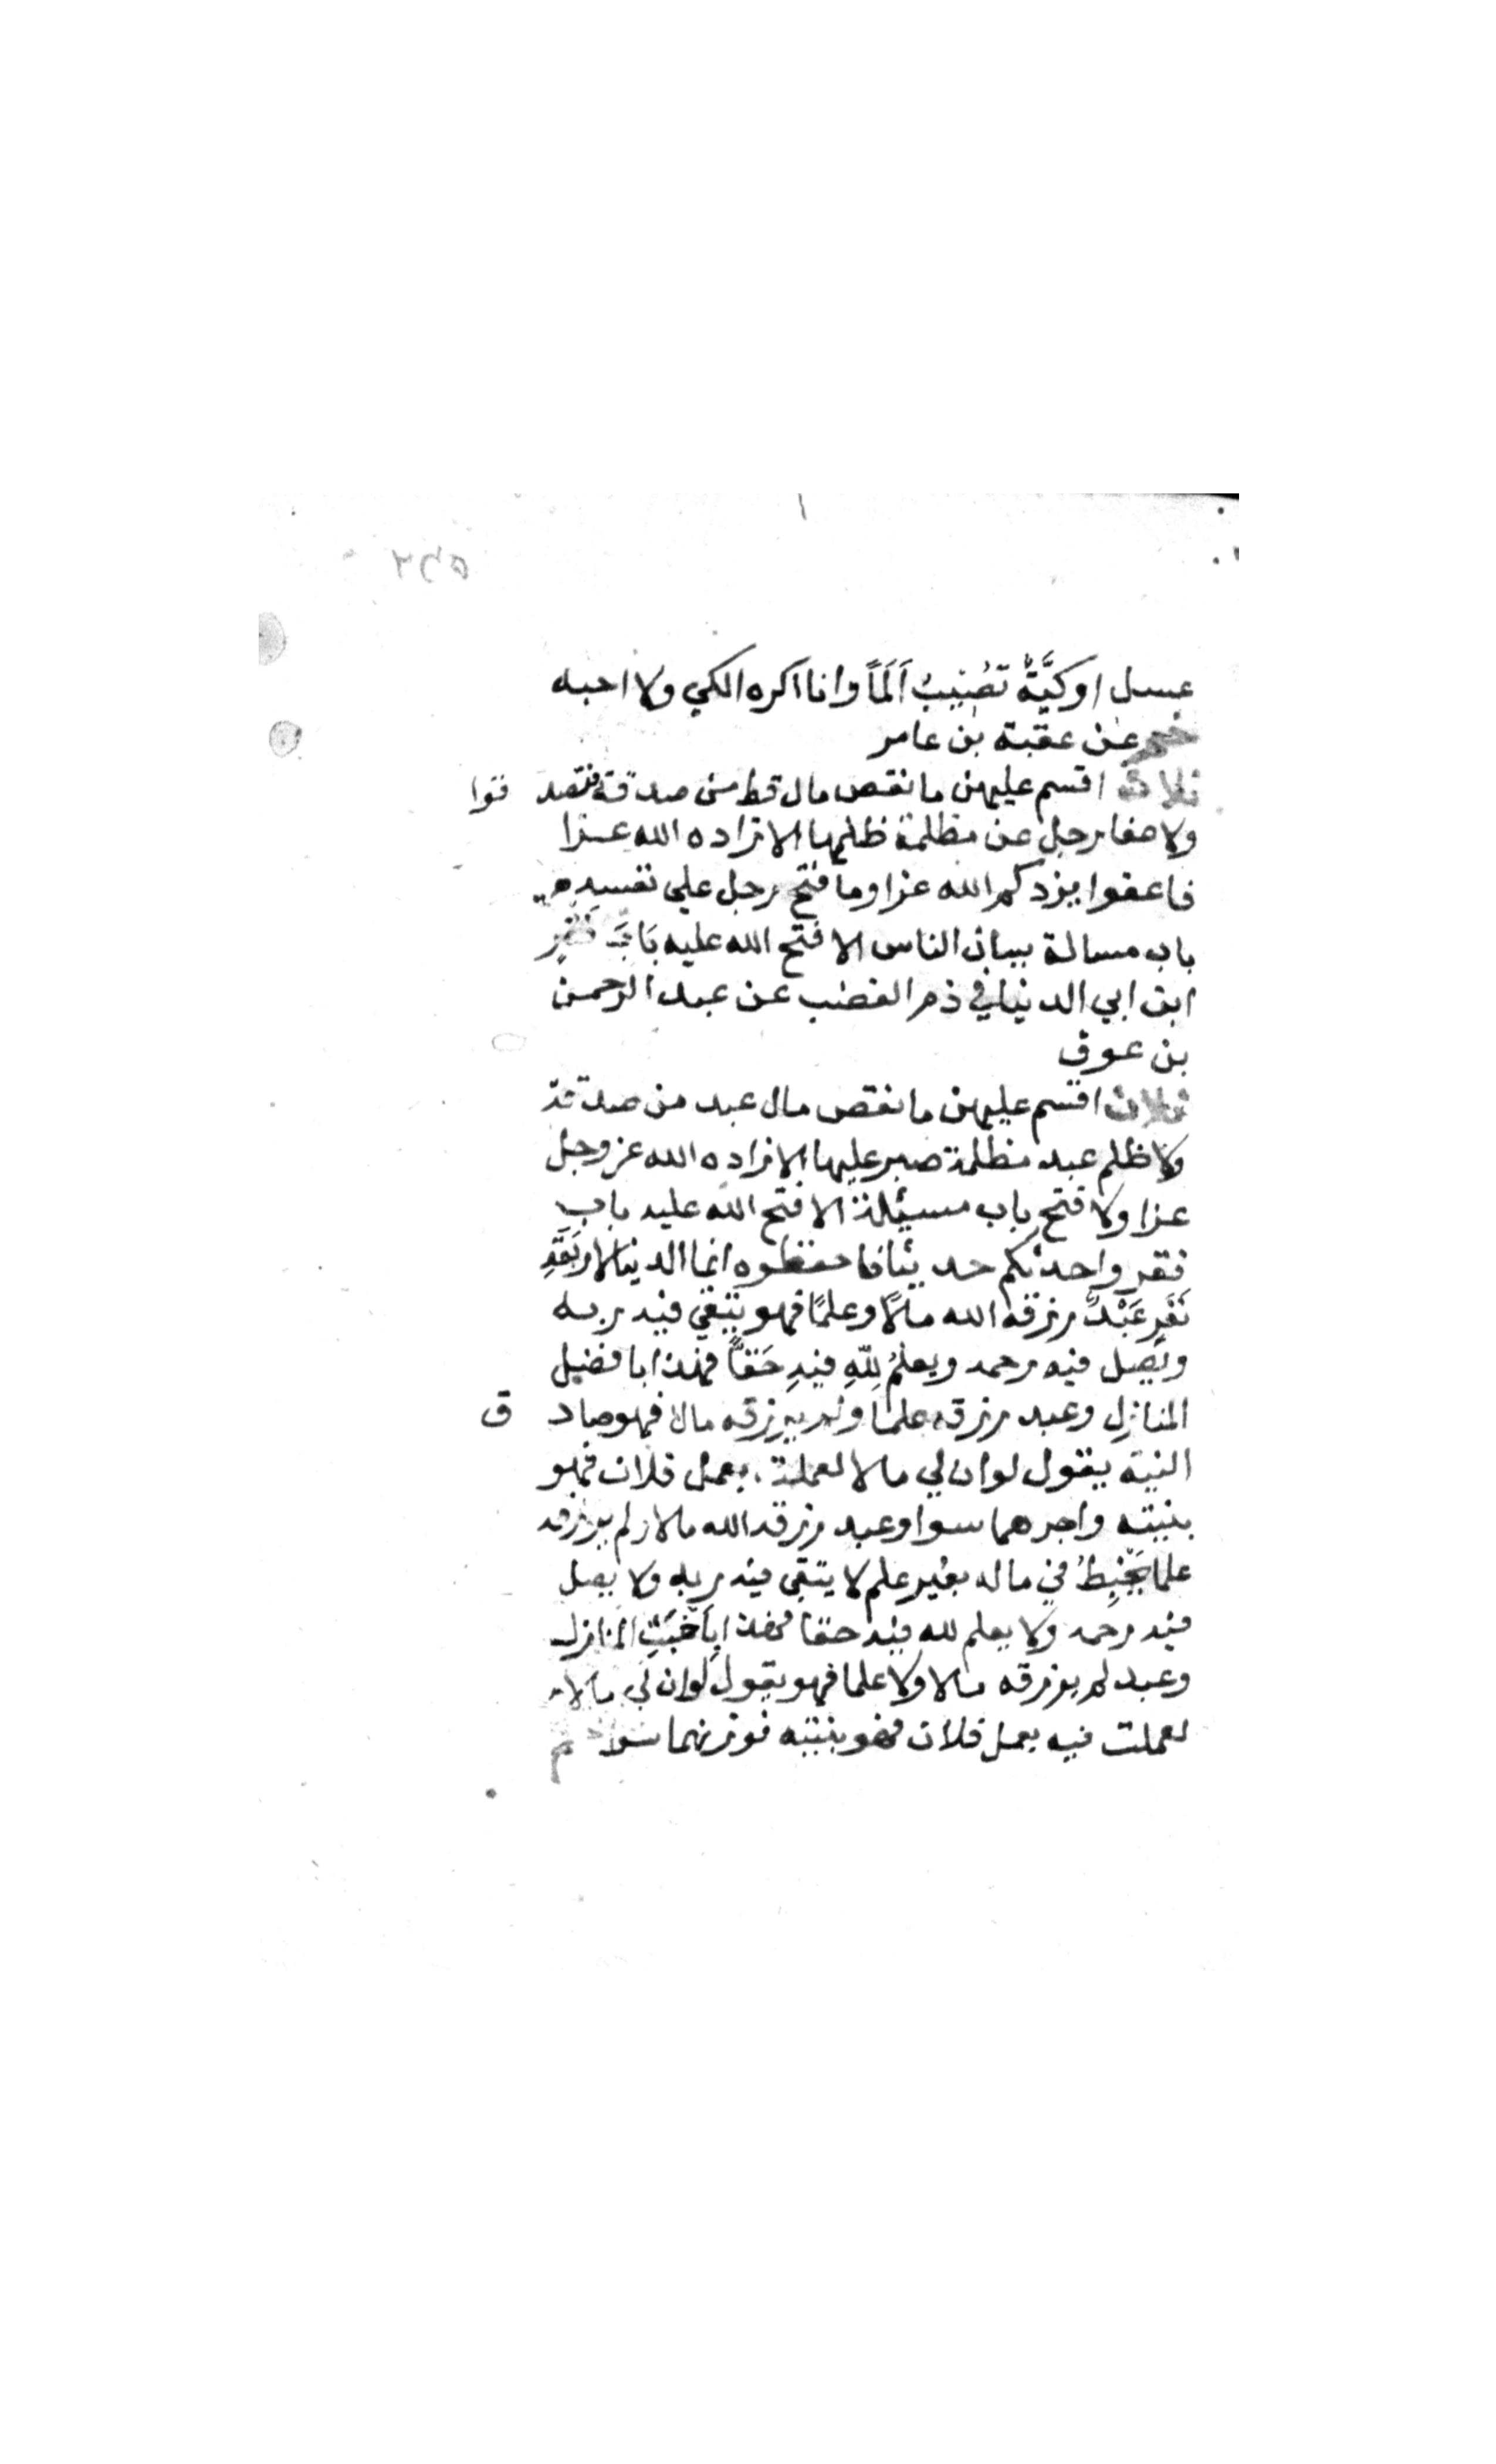 عسل او كَيَّةٌ تُصِيبُ اَلَماً وانا اكره الكي ولا احبه
حم عن عقبة بن عامر
ثلاث اقسم عليهن ما نقص مال قط من صدقة فتصد قوا
ولا عفا رجل عن مظلمة ظلمها الا زاده الله عزا
فاعفوا يزدكم الله عزا وما فتح رجل على نفسه
باب مسالة يسال الناس الا فتح الله عليه بَابَ فَقْرٍ
ابن ابي الدنيا في ذم الغضب عن عبد الرحمن
بن عوف
ثلاث اقسم عليهن ما نقص مال عبد من صدقة
ولا ظلم عبد مظلمة صبر عليها الا زاده الله عز وجل
عزا ولا فتح باب مسيئلة الا فتح الله عليه باب
فقر واحدثكم حديثا فاحفظوه انما الدنيا لاربَعَةِ
نَفَرٍ عَبْدٌ رزقه الله مالًا وعلمًا فهو يتقي فيه ربه
ويَصِل فيه رحمه ويعلمُ لِلّهِ فيهِ حَقًّا فهذا بافضل
المنازل وعبد رزقه علما ولم يرزقه مالا فهو صاد ق
النية يقول لو ان لي مالا لعملت بعمل فلان فهو
بنيته واجرهما سوا وعبد رزقه الله مالا ولم يرزقه
علما يَخْبِطُ في ماله بغير علم لا يتقي فيه ربه ولا يصل
فيه رحمه ولا يعلم لله فيه حقا فهذا باَخْبَثِ المنازل
وعبد لم يرزقه مالا ولا علما فهو يقول لو ان لي مالا
لعملت فيه بعمل فلان فهو بنيته فوزرهما سوا حم